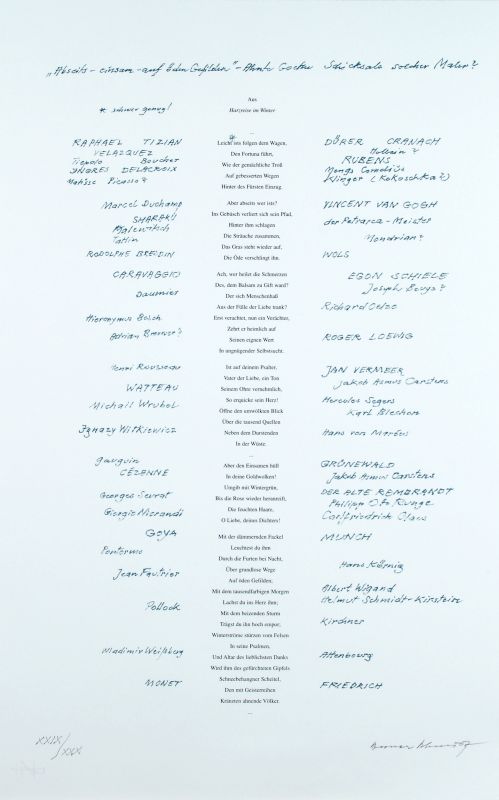 „Abseits – einsam – auf öden Gefilden" – Ahnte Goethe Schicksale solcher Maler?
* schwer genug!
Aus
Harzreise im Winter
...
RAPHAEL TIZIAN
VELAZQUEZ
Tiepolo Boucher
INGRES DELACROIX
Matisse Picasso?
Marcel Duchamp
SHARAKU
Malewitsch
Tatlin
RODOLPHE BRESDIN
CARAVAGGIO
Daumier
Hieronymus Bosch
Adrian Brouwer?
Henri Rousseau
WATTEAU
Michail Wrubel
Ignazy Witkiewicz
Gauguin
CÉZANNE
Georges Seurat
Giorgio Morandi
GOYA
Pontormo
Jean Fautrier
Pollock
Wladimir Weißberg
MONET
*
Leicht ists folgen dem Wagen,
Den Fortuna führt,
Wie der gemächliche Troß
Auf gebesserten Wegen
Hinter des Fürsten Einzug.
Aber abseits wer ists?
Ins Gebüsch verliert sich sein Pfad,
Hinter ihm schlagen
Die Sträuche zusammen,
Das Gras steht wieder auf,
Die Öde verschlingt ihn.
Ach, wer heilet die Schmerzen
Des, dem Balsam zu Gift ward?
Der sich Menschenhaß
Aus der Fülle der Liebe trank?
Erst verachtet, nun ein Verächter,
Zehrt er heimlich auf
Seinen eignen Wert
In ungnügender Selbstsucht.
Ist auf deinem Psalter,
Vater der Liebe, ein Ton
Seinem Ohre vernehmlich,
So erquicke sein Herz!
Öffne den umwölkten Blick
Über die tausend Quellen
Neben dem Durstenden
In der Wüste.
...
Aber den Einsamen hüll
In deine Goldwolken!
Umgib mit Wintergrün,
Bis die Rose wieder heranreift,
Die feuchten Haare,
O Liebe, deines Dichters!
Mit der dämmernden Fackel
Leuchtest du ihm
Durch die Furten bei Nacht,
Über grundlose Wege
Auf öden Gefilden;
Mit dem tausendfarbigen Morgen
Lachst du ins Herz ihm;
Mit dem beizenden Sturm
Trägst du ihn hoch empor;
Winterströme stürzen vom Felsen
In seine Psalmen,
Und Altar des lieblichsten Danks
Wird ihm des gefürchteten Gipfels
Schneebehangner Scheitel,
Den mit Geisterreihen
Kränzten ahnende Völker.
...
DÜRER CRANACH
Holbein?
RUBENS
Mengs Cornelius
Klinger (Kokoschka?)
VINCENT VAN GOGH
der Petrarca-Meister
Mondrian?
WOLS
EGON SCHIELE
Joseph Beuys?
Richard Oelze
ROGER LOEWIG
JAN VERMEER
Jakob Asmus Carstens
Hercules Segers
Karl Blechen
Hans von Marées
GRÜNEWALD
Jakob Asmus Carstens
DER ALTE REMBRANDT
Philipp Otto Runge
Carlfriedrich Claus
MUNCH
Hans Körnig
Albert Wigand
Helmut Schmidt-Kirstein
Kirchner
Altenbourg
FRIEDRICH
XXIX/XXX